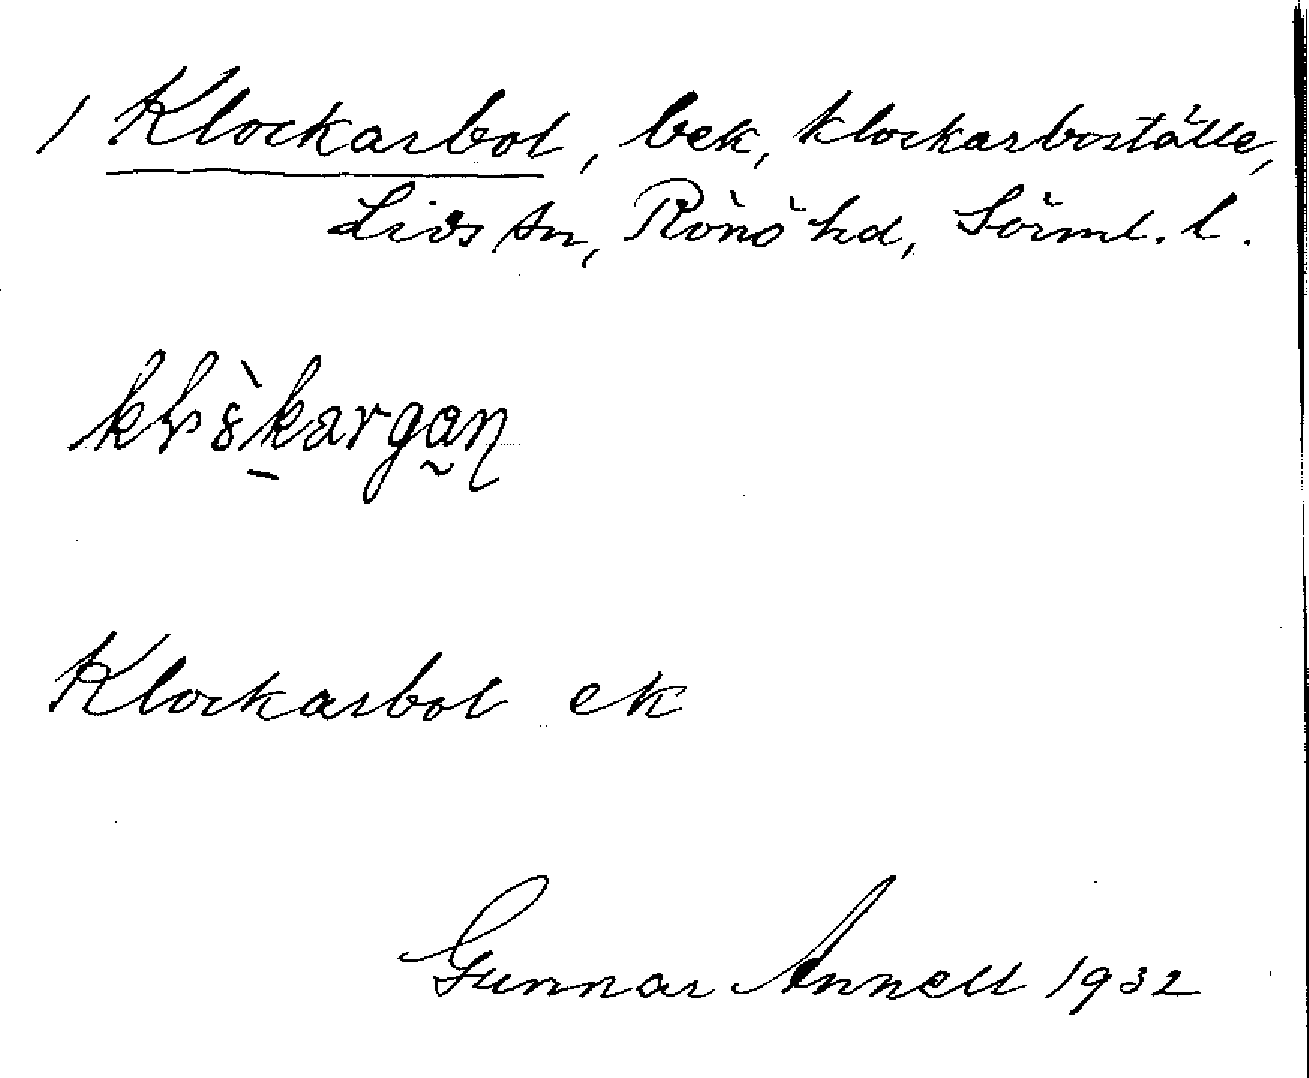 1 Klockarbol, bek, klockarboställe,
Lids sn, Rönö hd, Sörml. l.
Klockarbol ek
Gunnar Annell 1932